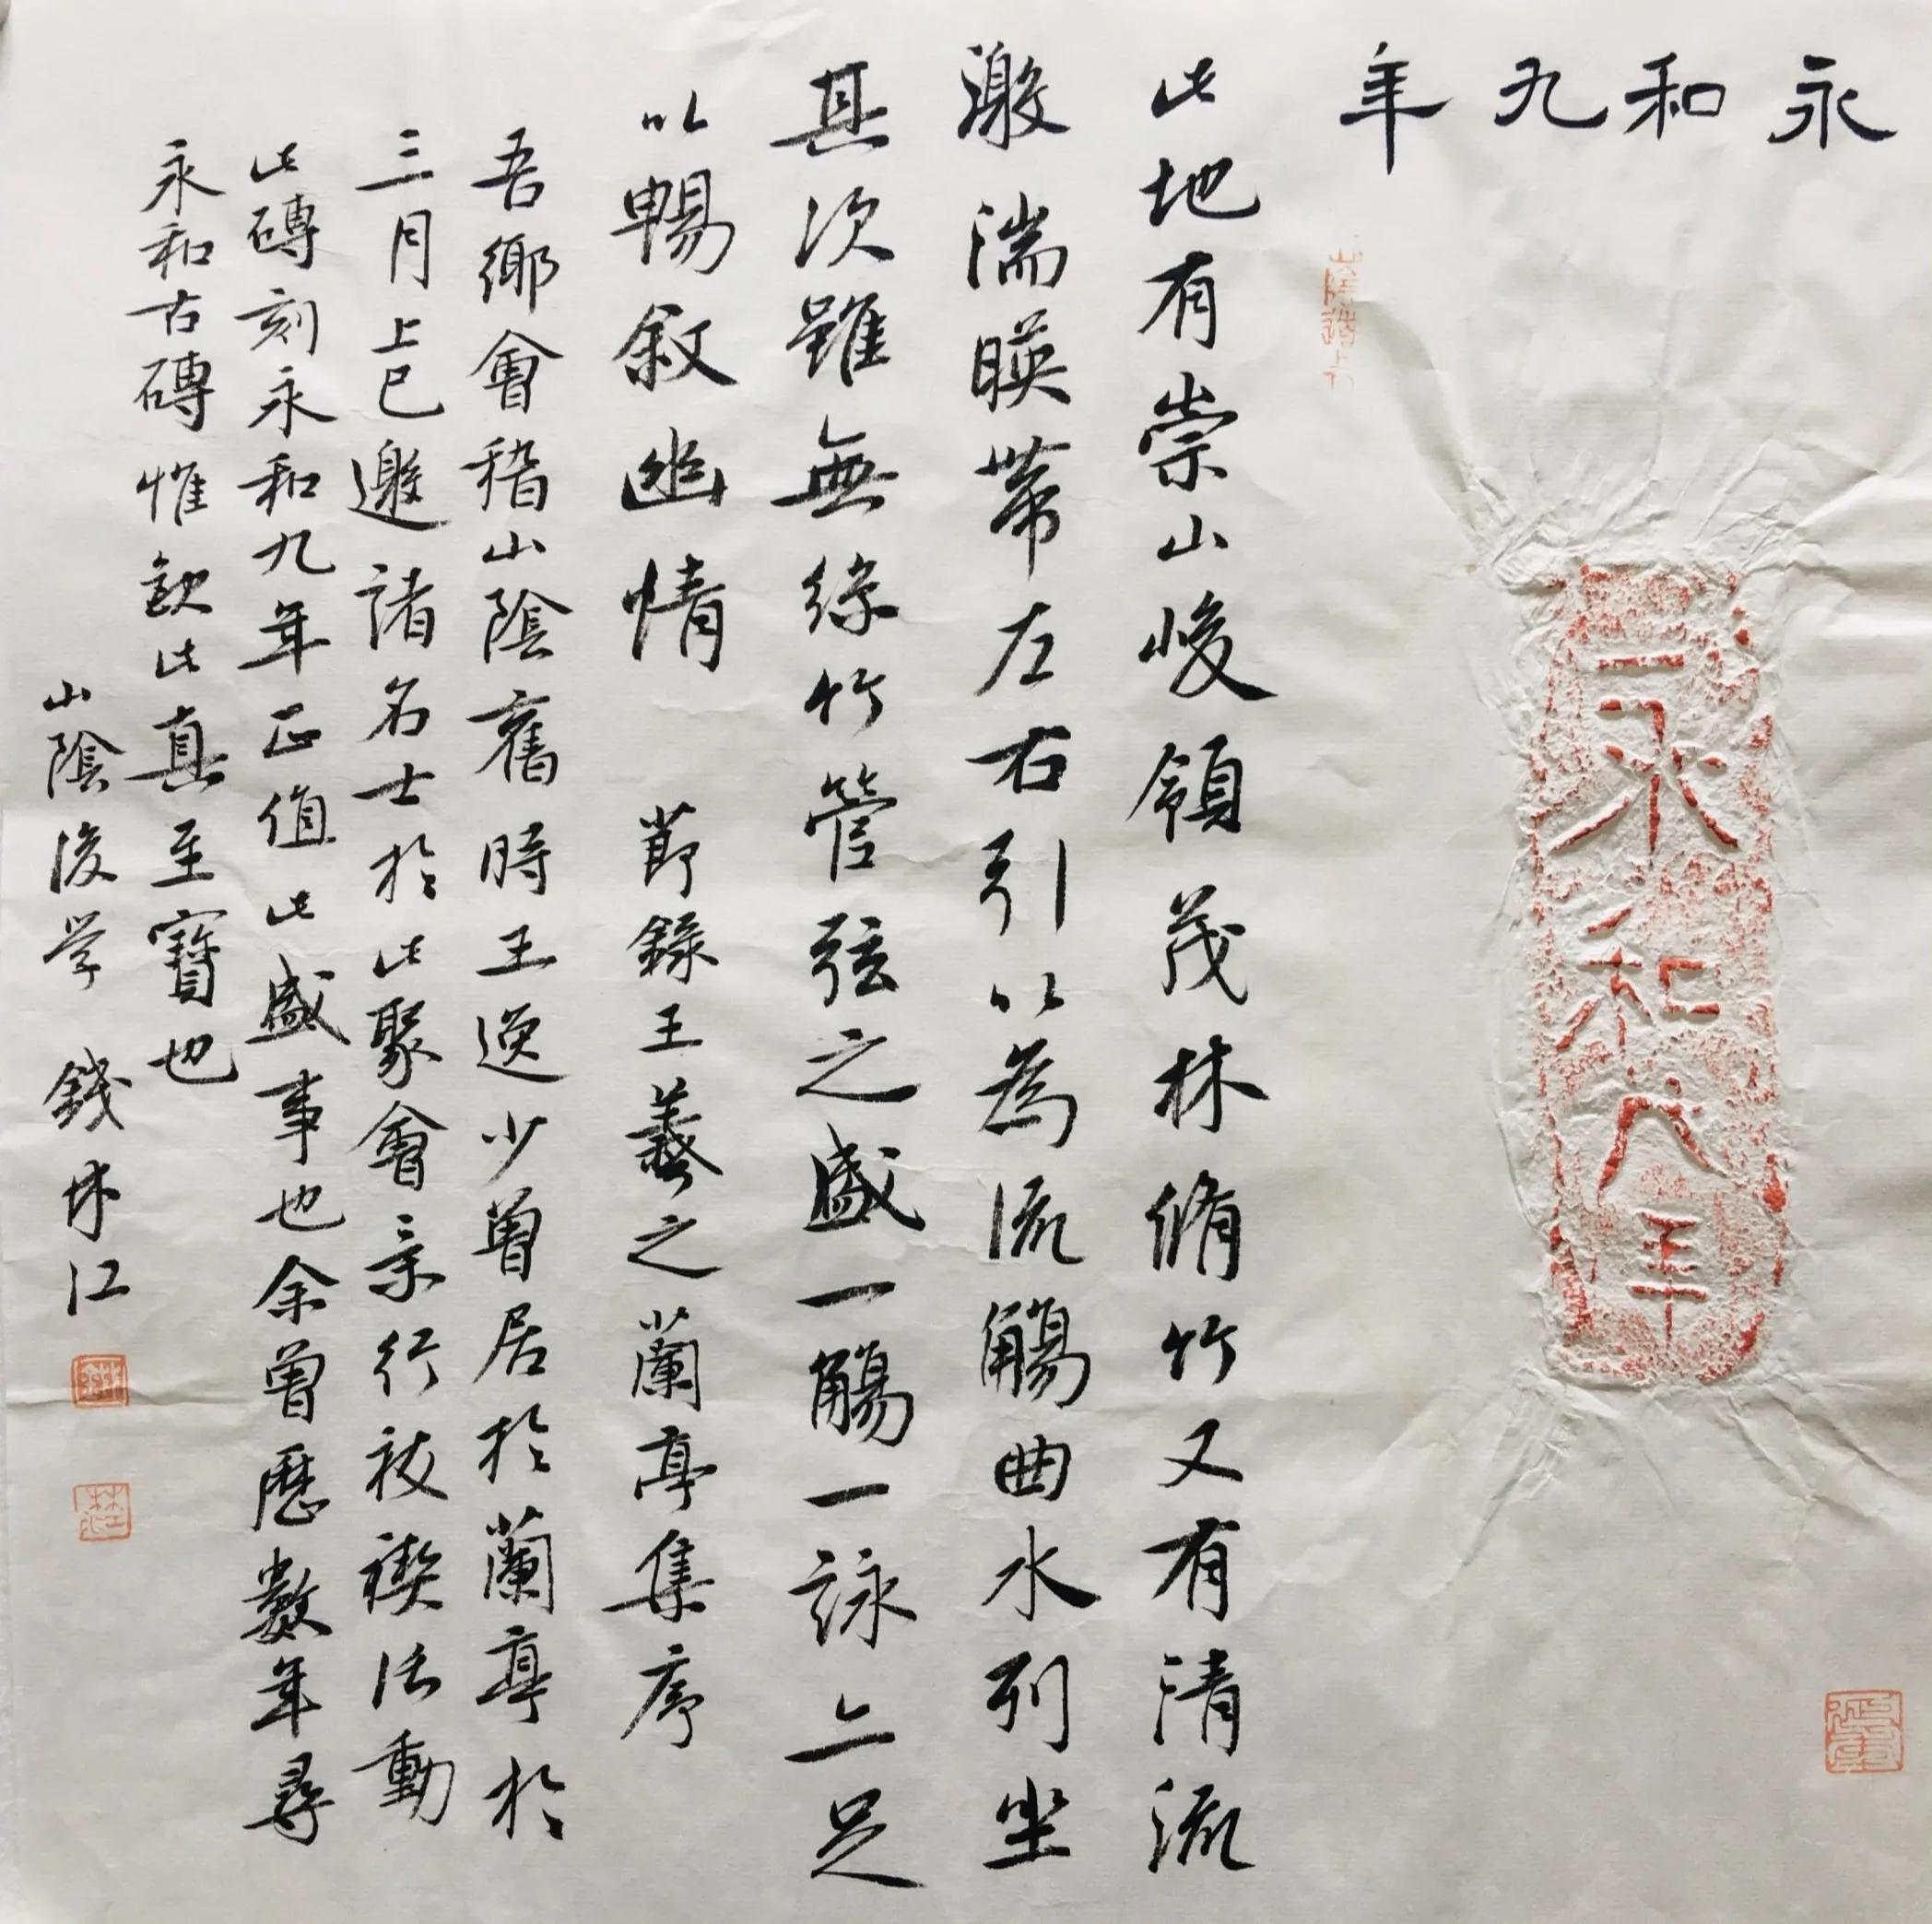 永和九年
永和八年
此地有崇山峻領茂林脩竹又有清流
激湍暎帶左右引以為流觴曲水列坐
其次雖無絲竹管弦之盛一觴一詠亦足
以暢敘幽情 節錄王羲之蘭亭集序
吾鄉會稽山陰舊時王逸少曾居於蘭亭於
三月上巳邀諸名士於此聚會亲行祓禊活動
此磚刻永和九年正值此盛事也余曾歷數年尋
永和古磚惟歡此真至寶也
山陰後学 錢林江
林江